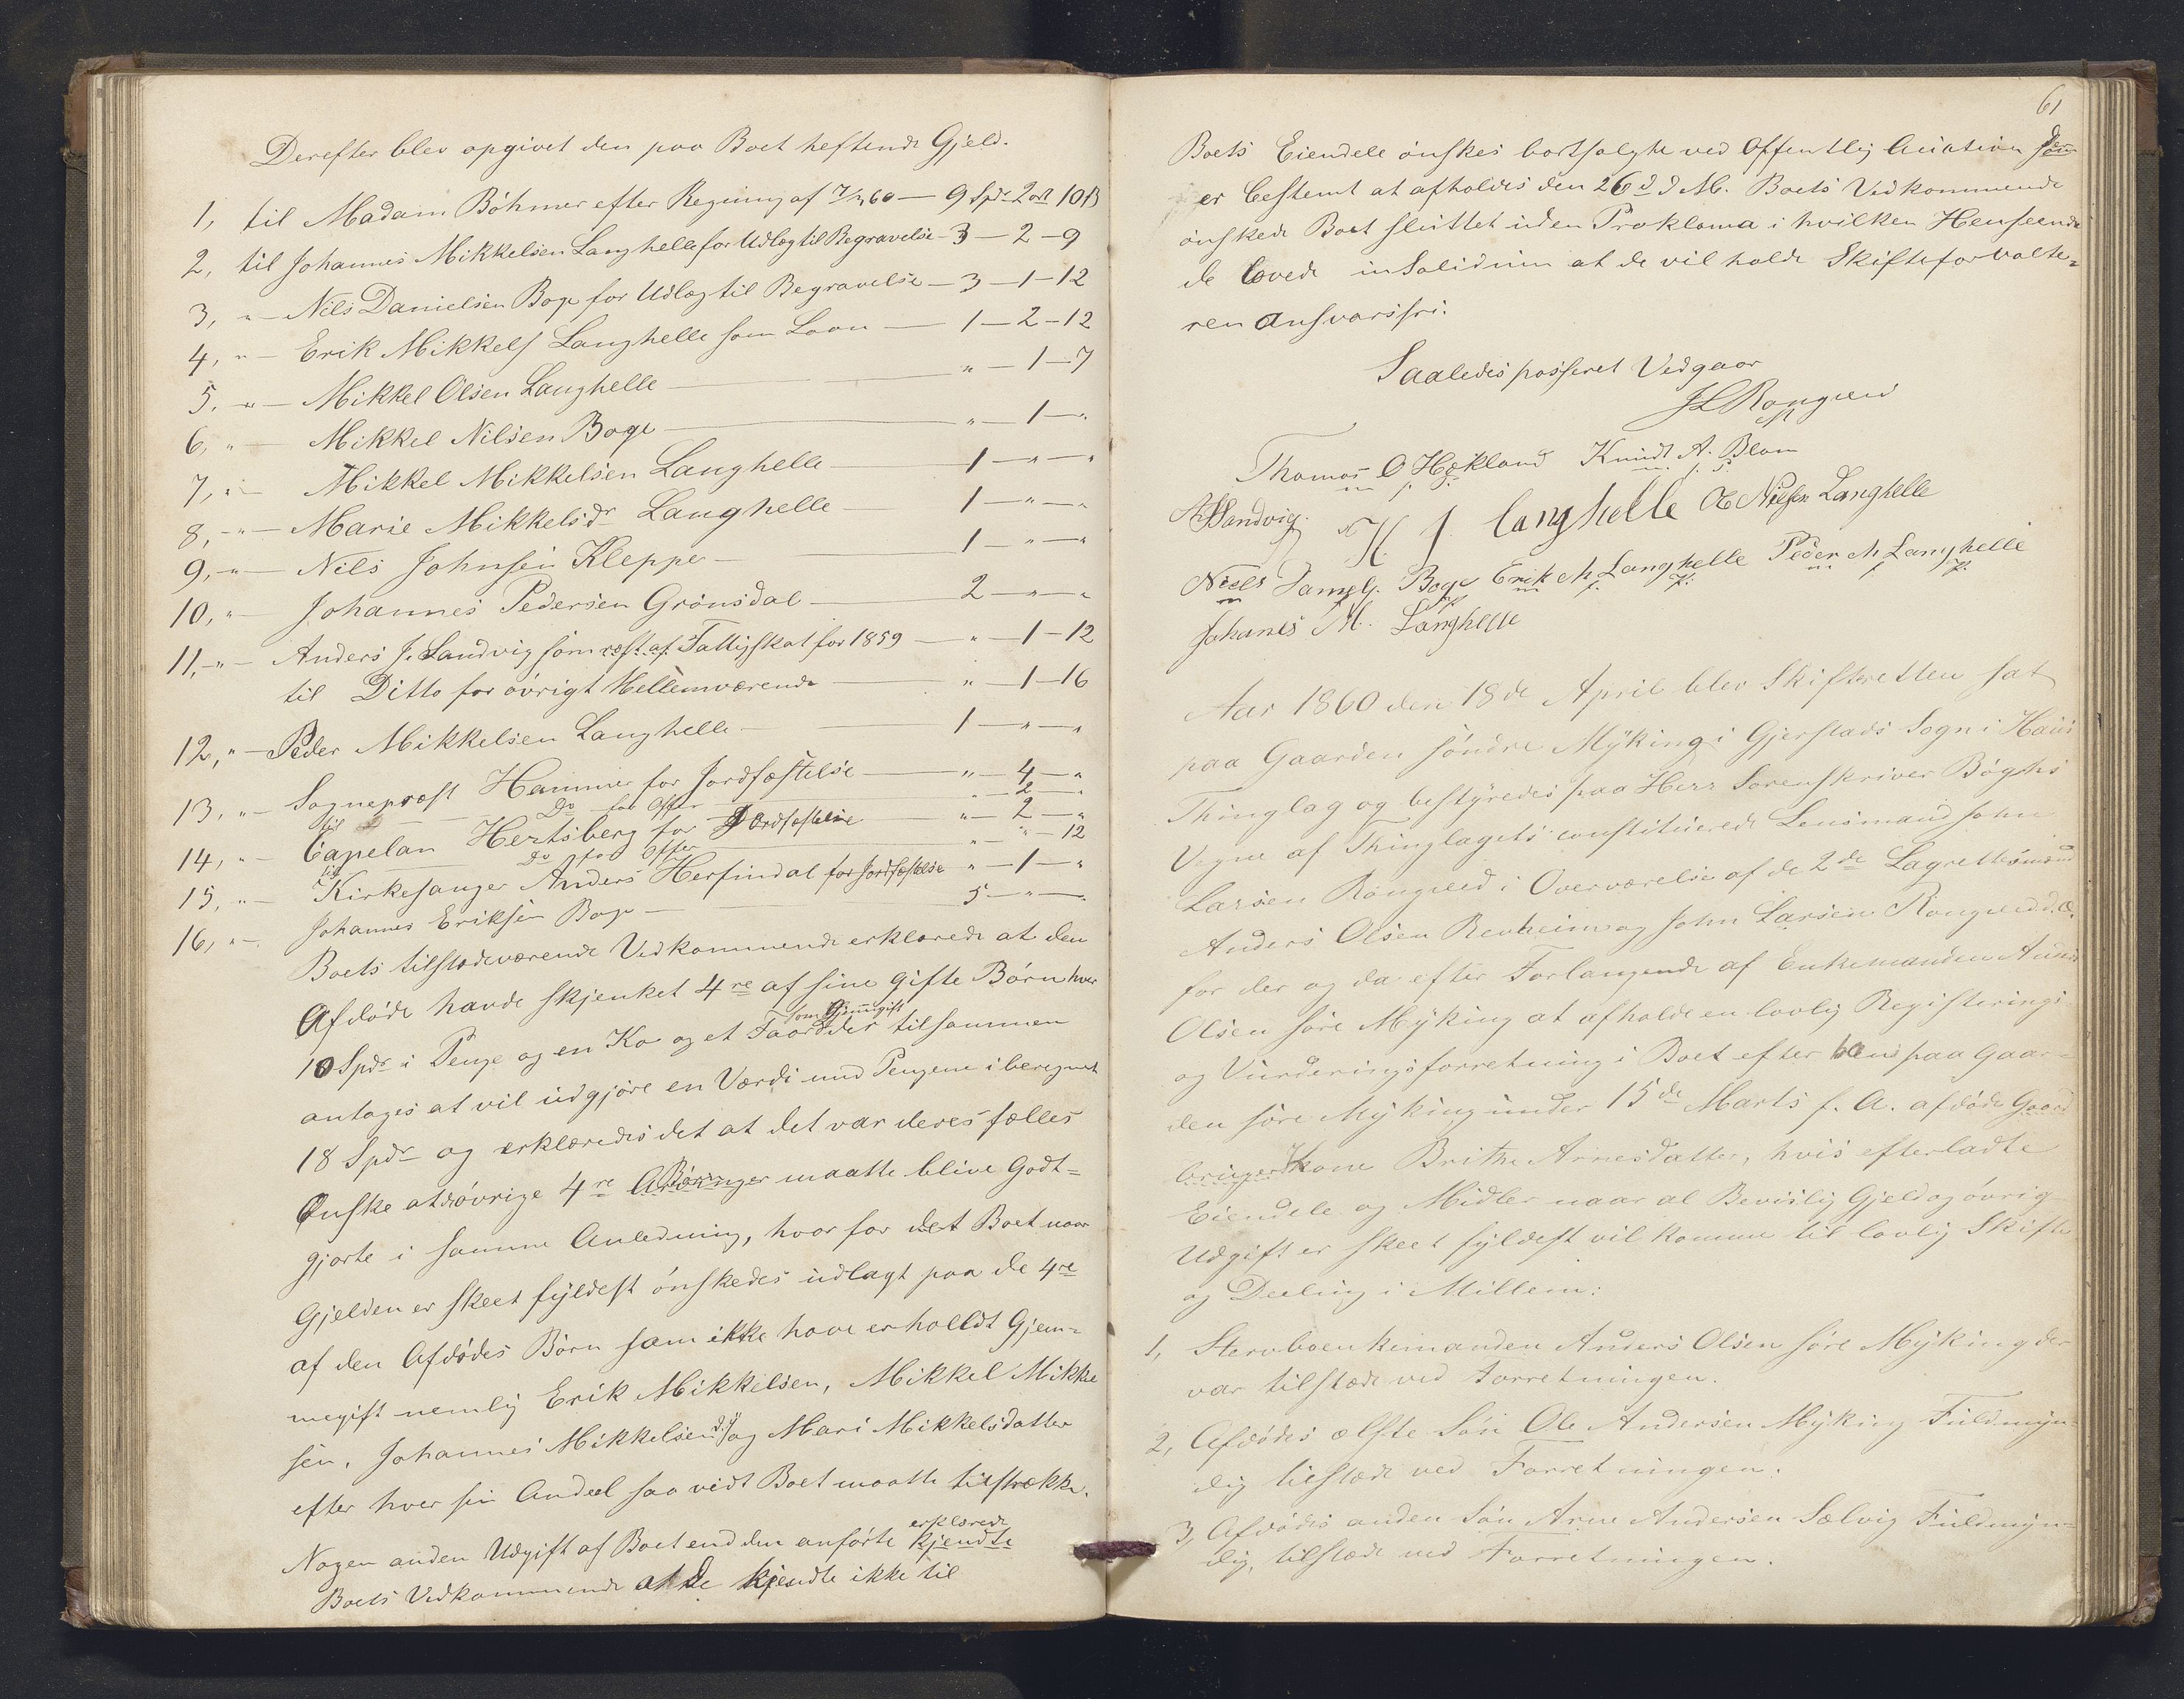 Derefter blev opgivet den paa Boet heftende Gjeld.
1, til Madam Böhmer efter Regning af 7/4 60 — 9 Spdr 2 ort 10 ß
2, til Johannes Mikkelsen Langhelle for Udlæg til Begravelse — 3 — 2 — 9
3, „ — Nils Danielsen Boge for Udlæg til Begravelse — 3 — 1 — 12
4, „ — Erik Mikkels Langhelle som Laan — 1 — 2 — 12
5, „ — Mikkel Olsen Langhelle — „ — 1 — 7
6, „ Mikkel Nilsen Boge — „ — 1 — „
7, „ — Mikkel Mikkelsen Langhelle — 1 — „ — „
8, „ — Marie Mikkelsdr Langhelle — 1 — „ — „
9, „ — Nils Johnsen Kleppe — 1 — „ — „
10, „ — Johannes Pedersen Grönsdal — 2 — „ — „
11, „ — Anders J. Sandvig som rest af Fattigskat for 1859 — „ — 1 — 12
til Ditto for övrigt Mellemværende — „ — 1 — 16
12, „ — Peder Mikkelsen Langhelle — 1 — „ — „
13, „ — Sogneprest Hammer for Jordfæstelse — „ — 4 — „
til — Do for Offer — „ — 2 — „
14, „ — Capelan Hertsberg for Jordfæstelse „ — 2 — „
til — Do for Offer „ — „ — 12
15, „ — Kirkesanger Anders Herfindal for Jordfæstelse „ — 1 — „
16, „ — Johannes Eriksen Boge — 5 — „ — „
Boets tilstedeværende Vedkommende erklærede at den
Afdöde havde skjenket 4re af sine gifte Börn hver
som Hjemmegift
10 Spdr i Penge og en Ko og et Faar der tilsammen
antages at vil udgjöre en Værdi med Pengene i beregnet
18 Spdr og erklæredes det at det var deres fælles
Önske at de övrige 4re Arvinger maatte blive Godt=
Börn
gjorte i samme Anledning, hvor for det Boet naar
Gjelden er skeet fyldest önskedes udlagt paa de 4re
af den Afdödes Börn som ikke have erholdt Hjem=
megift nemlig Erik Mikkelsen, Mikkel Mikkel
sen, Johannes Mikkelsen d.y. og Mari Mikkelsdatter
efter hver sin Andeel saa vidt Boet maatte tilstrække.
erklærede
Nogen anden Udgift af Boet end den anförte kjendte
Boets Vedkommende at de kjendte ikke til
61
Boets Eiendele önskes bortsolgte ved Offentlig Auction som
er bestemt at afholdes den 26d d. M. Boets Vedkommende
önskede Boet sluttet uden Proklama i hvilken Henseende
de lovede in Solidum at de vil holde Skifteforvalte=
ren ansvarsfri.
Saaledes passeret Vedgaar
J L Rongved
Thomas O Hækland Knudt A. Blom
m. f. P. m. f. P.
A J Sandvig N H J Langhelle Ole Nilsen Langhelle
Niels Daniels. Boge Erik M Langhelle Peder M Langhelle
m. f. P. m. f. P.
Johanes M. Langhelle
Aar 1860 den 18de April blev Skifteretten sat
paa Gaarden söndre Myking i Gjerstads Sogn i Haus
Thinglag og bestyredes paa Herr Sorenskriver Böghs
Vegne af Thinglagets constituerede Lensmand John
Larsen Rongved i Overværelse af de 2de Lagrettesmænd
Anders Olsen Revheim og John Larsen Rongved d. æ.
for der og da efter Forlangende af Enkemanden Anders
Olsen söre Myking at afholde en lovlig Registerings
og Vurderingsforretning i Boet efter hans paa Gaar=
den söre Myking under 15de Marts f. A. afdöde Gaard
brugerkone Brithe Arnesdatter, hvis efterladte
Eiendele og Midler naar al Bevislig Gjeld og övrig
Udgift er skeet fyldest vil komme til lovlig Skifte
og Deeling i Millem:
1, Stervboenkemanden Anders Olsen söre Myking der
var tilstæde ved Forretningen.
2, Afdödes ælste Sön Ole Andersen Myking Fuldmyn=
dig tilstæde ved Forretningen.
3, Afdödes anden Sön Arne Andersen Sælvig Fuldmyn=
dig, tilstæde ved Forretningen.